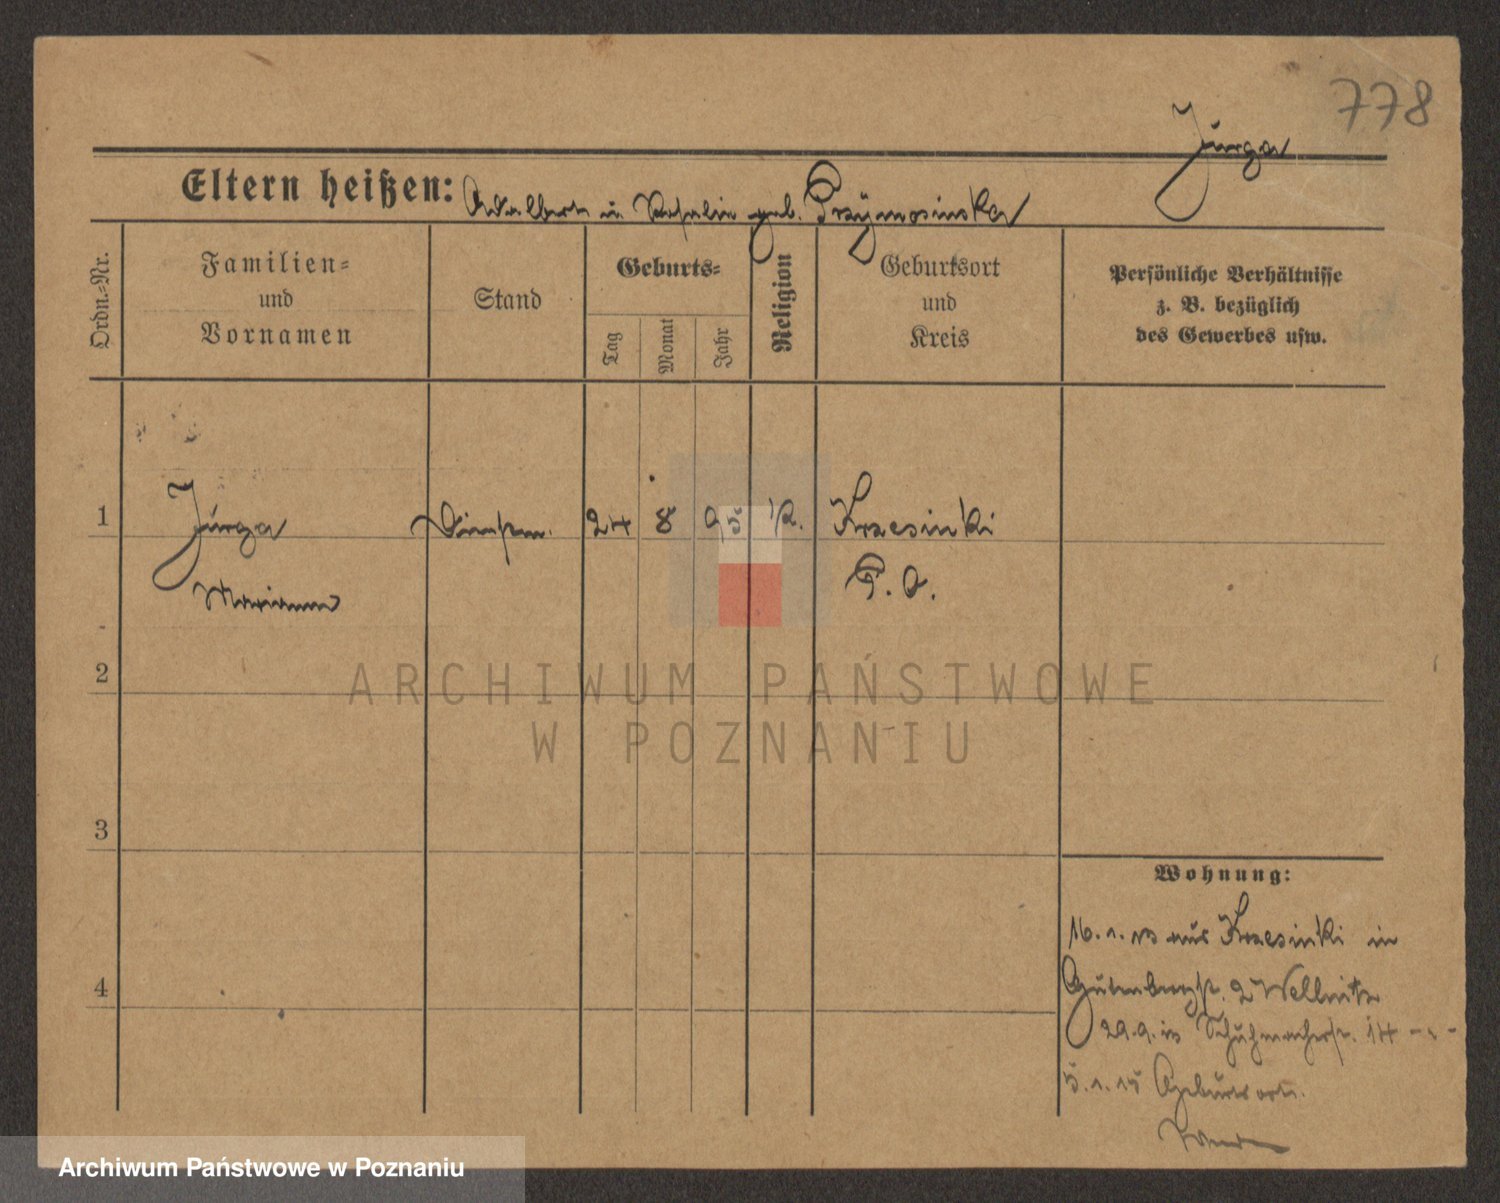 778
Jurga
Eltern heißen: Adalbert u. Rosalie geb. Przymosinska
Ordn.=Nr.
Familien=
und
Vornamen
Stand
Geburts=
Tag
Monat
Jahr
Religion
Geburtsort
und
Kreis
Persönliche Verhältnisse
z. B. bezüglich
des Gewerbes usw.
1
Jurga
Marianna
24 8 95 K.
Krzesinki
P. O.
2
3
4
Wohnung:
16.1.13 aus Krzesinki in
Gutenbergst. 2
29.9. Schuhmacherstr. 14
5.1.15 Geburtsort.
ARCHIWUM PAŃSTWOWE
W POZNANIU
Archiwum Państwowe w Poznaniu